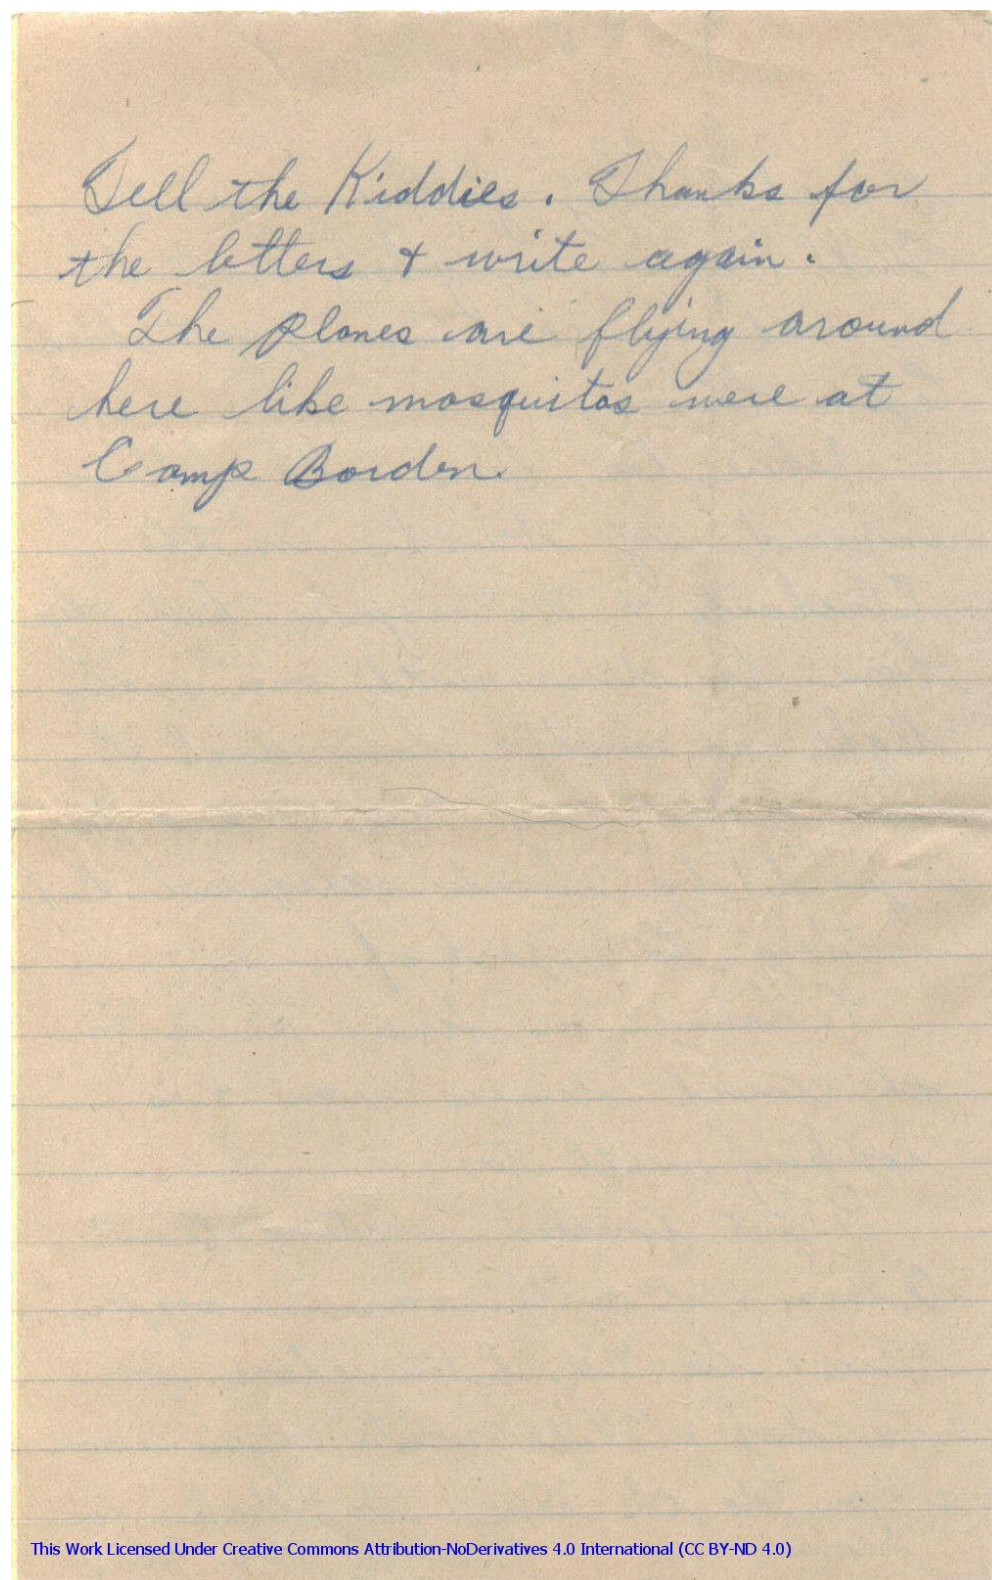 Tell the Kiddies. Thanks for
the letters & write again.
The planes are flying around
here like mosquitos were at
Camp Borden.
This Work Licensed Under Creative Commons Attribution-NoDerivatives 4.0 International (CC BY-ND 4.0)